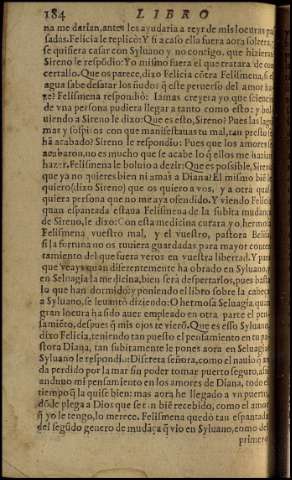 184 LIBRO
na me darian, antes les ayudaria a reyr de mis locuras pa
sadas. Felicia le replicò: Y si a caso ella fuera aora soltera,
se quisiera casar con Syluano y no contigo. que hizieras
Sireno le respõdio: Yo mismo fuera el que tratara de con
certallo. Que os parece, dixo Felicia cõtra Felismena, si el
agua sabe desatar los ñudos q̃ este peruerso del amor ha-
ze? Felismena respondiò: Iamas creyera yo que sciencia
de vna persona pudiera llegar a tanto como esto: y bol
uiendo a Sireno le dixo: Que es esto, Sireno? Pues las lagri
mas y sospiros con que manifestauas tu mal, tan presto se
hã acabado? Sireno le respondio: Pues que los amores se
acabaron, no es mucho que se acabe lo q̃ ellos me hazian
hazer. Felismena le boluio a dezir: Que es possible, Sireno
que ya no quieres bien ni amas a Diana? El mismo biẽ le
quiero (dixo Sireno) que os quiero a vos, y a otra qual
quiera persona que no me aya ofendido. Y viendo Felicia
quan espantada estaua Felismena de la subita mudança
de Sireno, le dixo: Con esta medicina curara yo, hermosa
Felismena vuestro mal, y el vuestro, pastora Belisa,
si la fortuna no os tuuiera guardadas para mayor conten
tamiento del que fuera veros en vuestra libertad. Y para
que veays quan diferentemente ha obrado en Syluano, y
en Seluagia la medicina, bien será despertarlos, pues basta
lo que han dormido: y poniendo el libro sobre la cabeça
a Syluano, se leuantò diziendo: O hermosa Seluagia, quan
gran locura ha sido auer empleado en otra parte el pen-
samiẽto, despues q̃ mis ojos te vierõ. Que es esso Syluano,
dixo Felicia, teniendo tan puesto el pensamiento en tu pa
stora Diana, tan subitamente le pones aora en Seluagia?
Syluano le respondio: Discreta señora, como el nauio q̃ an
da perdido por la mar sin poder tomar puerto seguro, assi
anduuo mi pensamiento en los amores de Diana, todo el
tiempo q̃ la quise bien: mas aora he llegado a vn puerto,
dõde plega a Dios que sea tan biẽ recebido, como el amor
q̃ yo le tengo, lo merece. Felismena quedò tan espantada
del segũdo genero de mudãça q̃ vio en Syluano, como del
primero